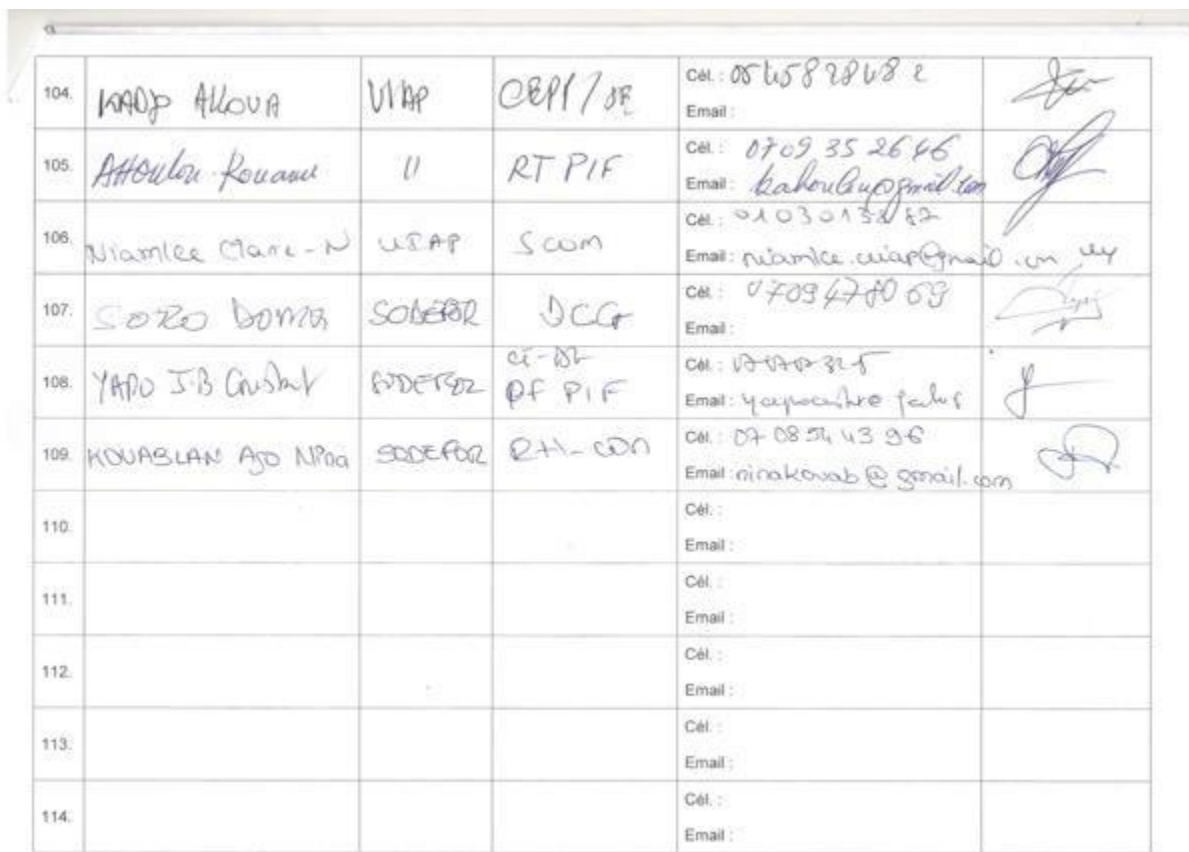 104. KADJO AKOUA UIAP CEPF/DE Cél. : 0545828482
Email :
105. AHOULOU Kouamé 11 RT PIF Cél. : 0709 35 2646
Email : kahoulou@gmail.com
106. Niamke Claire-N UIAP SCOM Cél. :
Email :
107. SORO SODEFOR DCG Cél. : 0709478069
Email :
108. YAPO J.B SODEFOR PF PIF Cél. :
Email :
109. KOUABLAN AJO Nina SODEFOR Cél. : 07 08 54 43 96
Email : ninakouab@gmail.com
110. Cél. :
Email :
111. Cél. :
Email :
112. Cél. :
Email :
113. Cél. :
Email :
114. Cél. :
Email :